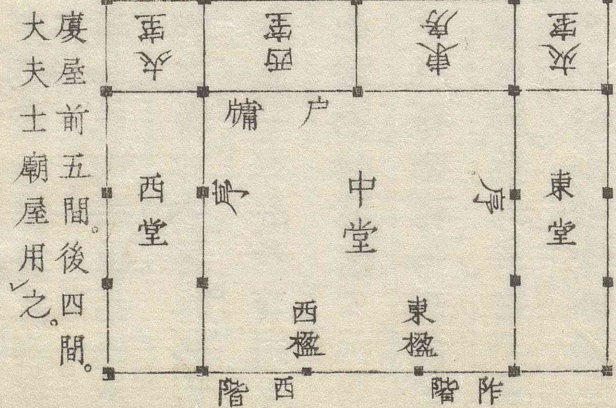 夾室
東房
西室
夾室
户
牖
東堂
序
中堂
序
西堂
東楹
西楹
阼階
西階
廈屋前五間。後四間。
大夫士廟屋用之。